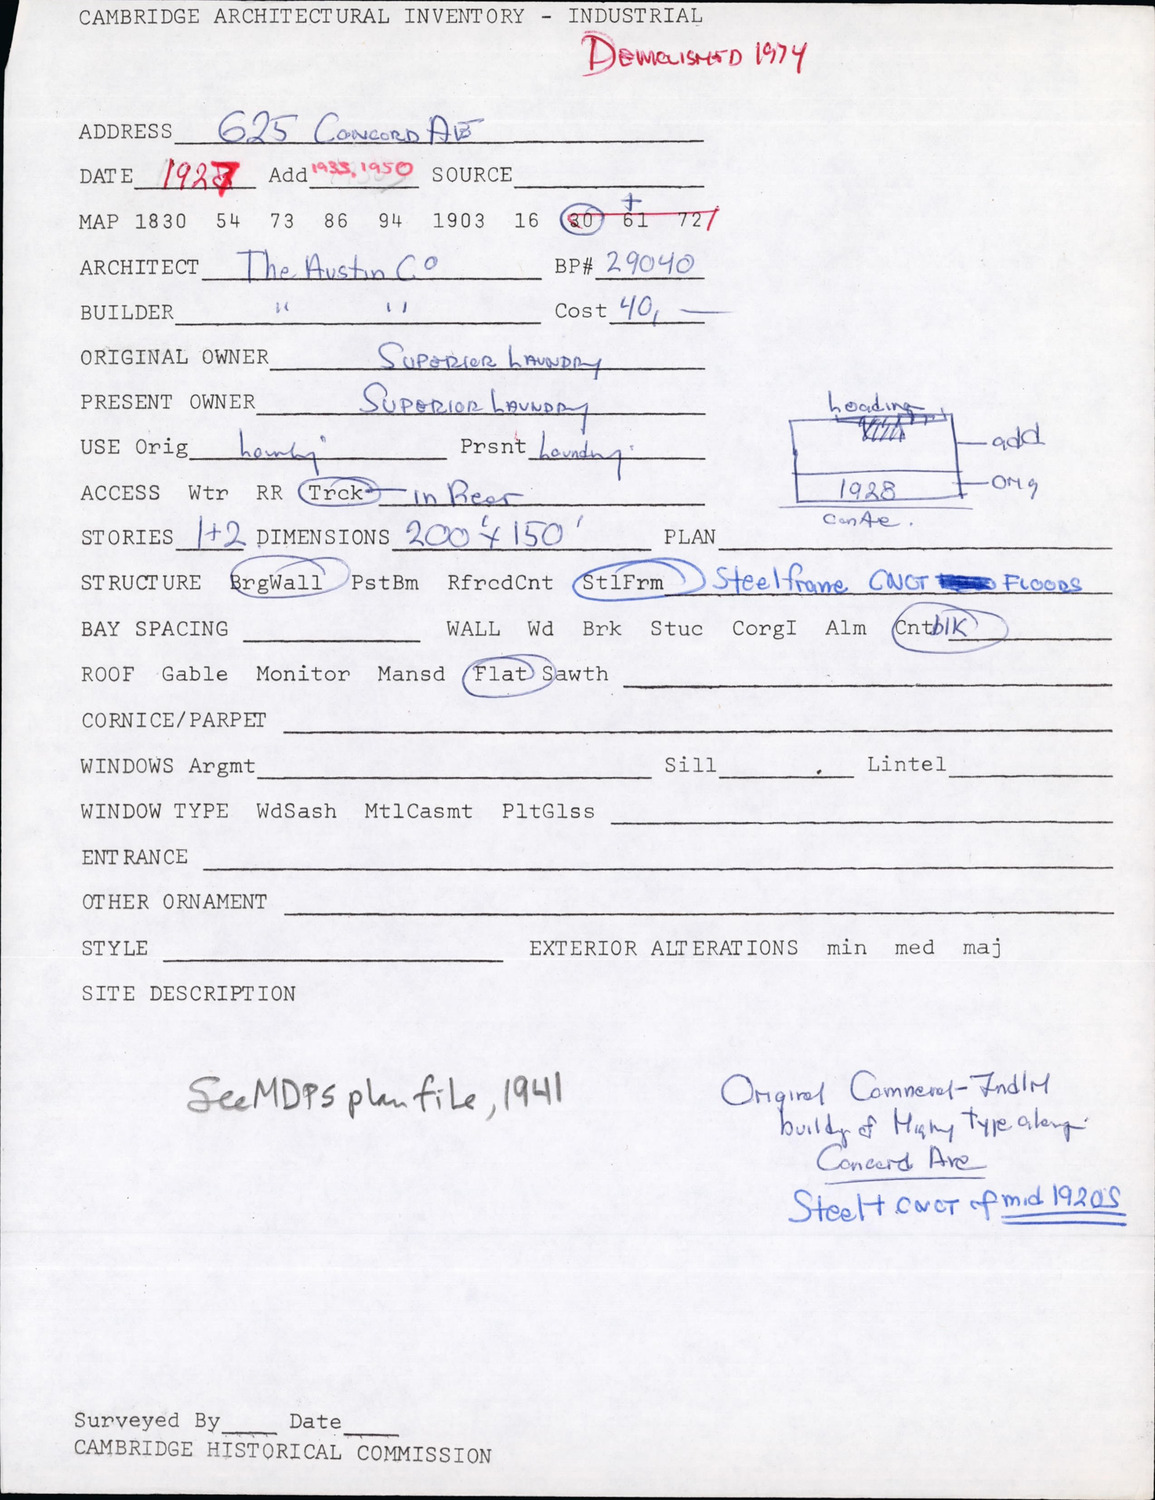 CAMBRIDGE ARCHITECTURAL INVENTORY - INDUSTRIAL
DEMOLISHED 1974
ADDRESS 625 CONCORD AVE
DATE 1928 Add 1933, 1950 SOURCE
MAP 1830 54 73 86 94 1903 16 30 + 61 72
ARCHITECT The Austin Co BP# 29040
BUILDER " " Cost 40, —
ORIGINAL OWNER SUPERIOR LAUNDRY
PRESENT OWNER SUPERIOR LAUNDRY
USE Orig Laundry Prsnt Laundry
Loading
add
1928
orig
ConAve.
ACCESS Wtr RR Trck in Rear
STORIES 1+2 DIMENSIONS 200' x 150' PLAN
STRUCTURE BrgWall PstBm RfrcdCnt StlFrm Steel frame CNCT FLOORS
BAY SPACING WALL Wd Brk Stuc CorgI Alm Cntblk
ROOF Gable Monitor Mansd Flat Sawth
CORNICE/PARPET
WINDOWS Argmt Sill Lintel
WINDOW TYPE WdSash MtlCasmt PltGlss
ENTRANCE
OTHER ORNAMENT
STYLE EXTERIOR ALTERATIONS min med maj
SITE DESCRIPTION
See MDPS plan file, 1941
Original Commercl-Indlrl
buildg of type along
Concord Ave
Steel + CNCT of mid 1920s
Surveyed By Date
CAMBRIDGE HISTORICAL COMMISSION